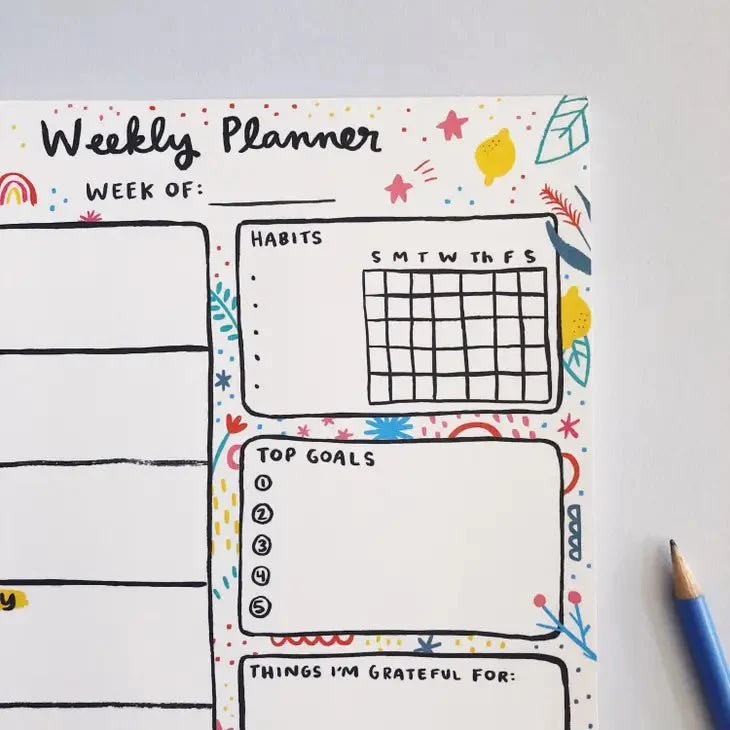 Weekly Planner
WEEK OF:
HABITS
S M T W Th F S
TOP GOALS
1
2
3
4
5
THINGS I'M GRATEFUL FOR: